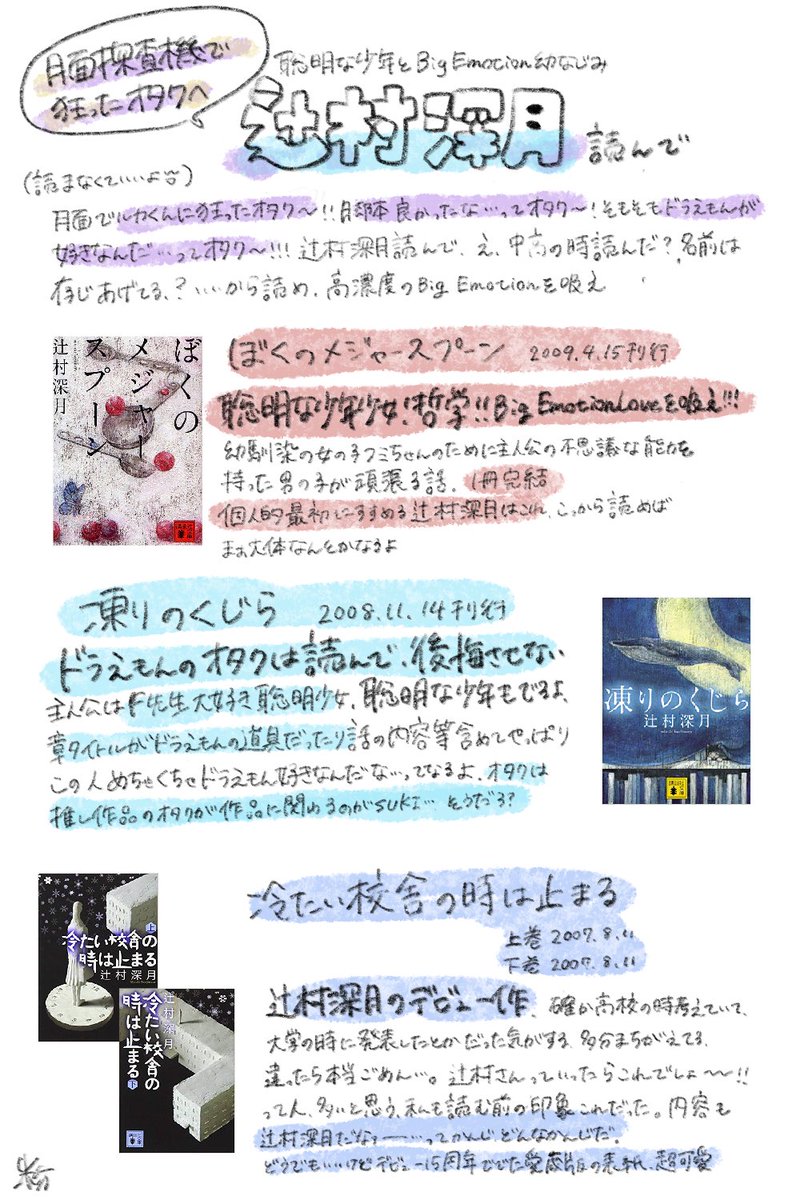 月面探査機で
狂ったオタクへ
聡明な少年とBig Emotion幼なじみ
辻村深月 読んで
(読まなくていいよ)
月面でルカくんに狂ったオタク〜!!脚本良かったな…ってオタク〜!そもそもドラえもんが
好きなんだ…ってオタク〜!!!辻村深月読んで、え、中高の時読んだ?名前は
存じあげてる、?いいから読め、高濃度のBig Emotionを吸え
ぼくのメジャースプーン 2009.4.15刊行
聡明な少年少女!哲学!!Big EmotionLoveを吸え!!!
幼馴染の女の子フミちゃんのために主人公の不思議な能力を
持った男の子が頑張る話。1冊完結
個人的最初にすすめる辻村深月はこれ、こっから読めば
まぁ大体なんとかなるよ
ぼくの
メジャー
スプーン
辻村深月
凍りのくじら 2008.11.14刊行
ドラえもんのオタクは読んで、後悔させない
主人公はF先生大好き聡明少女、聡明な少年もでるよ、
章タイトルがドラえもんの道具だったり話の内容等含めてやっぱり
この人めちゃくちゃドラえもん好きなんだな…ってなるよ、オタクは
推し作品のオタクが作品に関わるのがSUKI… そうだろ?
凍りのくじら
辻村深月
冷たい校舎の時は止まる
上巻 2007.8.11
下巻 2007.8.11
辻村深月のデビュー作、確か高校の時考えていて、
大学の時に発表したとかだった気がする、多分まちがえてる、
違ったら本当ごめん…。辻村さんっていったらこれでしょ〜〜!!
って人、多いと思う、私も読む前の印象これだった。内容も
辻村深月だなァー…ってかんじ、どんなかんじだ。
どうでもいいけどデビュー15周年ででた愛蔵版の表紙、超可愛
上
冷たい校舎の
時は止まる
辻村深月
冷たい校舎の
時は止まる
下
辻村深月